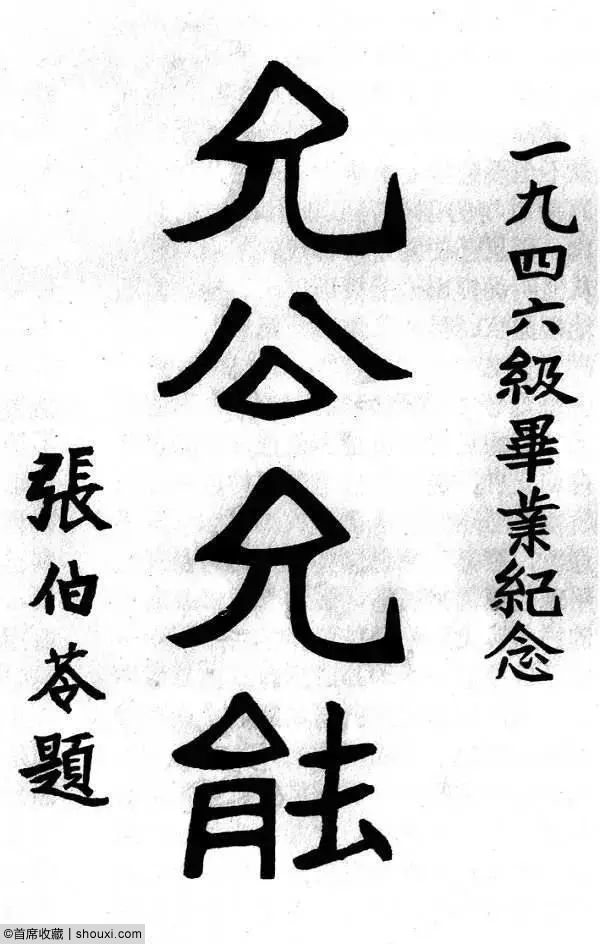 一九四六級畢業紀念
允公允能
張伯苓題
©首席收藏 | shouxi.com